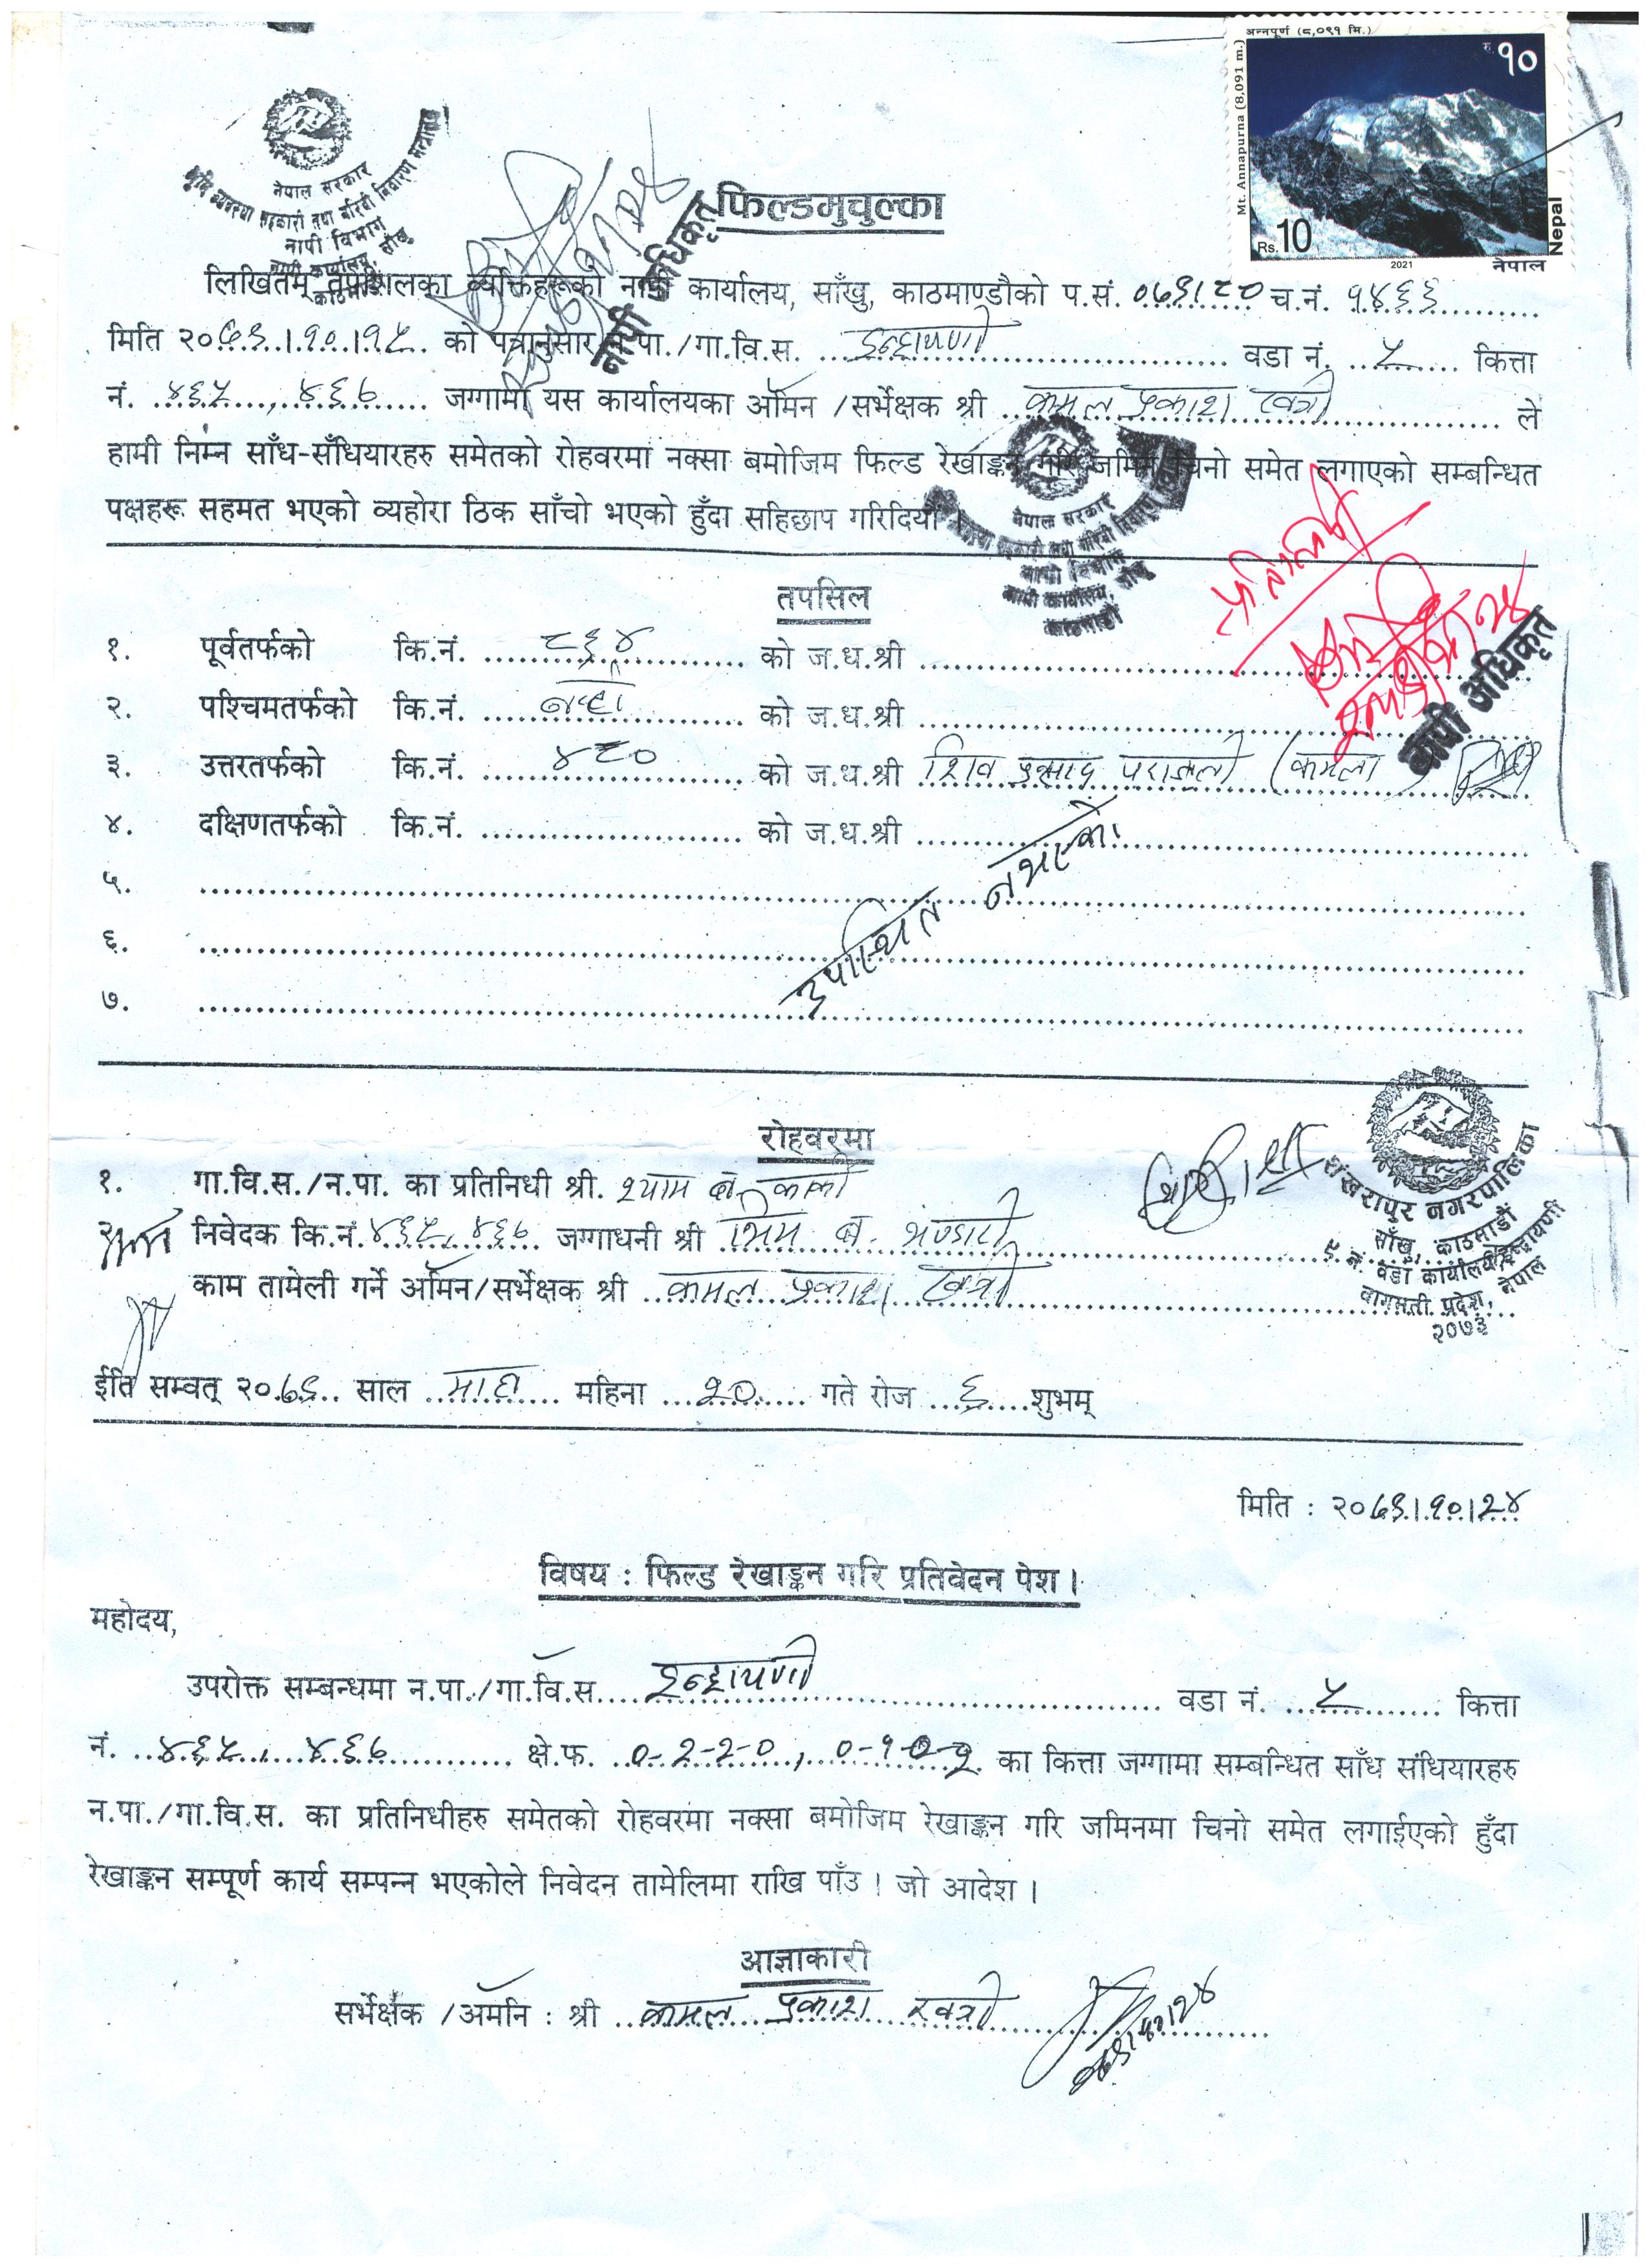 अन्नपूर्ण (८,०९१ मि.)
रु.१०
Mt. Annapurna (8,091 m.)
Rs.10
Nepal
2021 नेपाल
नेपाल सरकार
भूमि व्यवस्था सहकारी तथा गरिबी निवारण मन्त्रालय
नापी विभाग
नापी कार्यालय, साँखु
काठमाडौं
नापी अधिकृत
फिल्डमुचुल्का
लिखितम् तपशिलका व्यक्तिहरूको नापी कार्यालय, साँखु, काठमाण्डौको प.सं. ०७९।८० च.नं. १४६६
मिति २०७९।१०।१५ को पत्रानुसार न.पा./गा.वि.स. इन्द्रायणी वडा नं. ५ कित्ता
नं. ४६५, ४६७ जग्गामा यस कार्यालयका अमिन /सर्भेक्षक श्री कमल प्रकाश खत्री ले
हामी निम्न साँध-सँधियारहरु समेतको रोहवरमा नक्सा बमोजिम फिल्ड रेखाङ्कन गरि जमिनमा चिनो समेत लगाएको सम्बन्धित
पक्षहरू सहमत भएको व्यहोरा ठिक साँचो भएको हुँदा सहिछाप गरिदियौं ।
नेपाल सरकार
नापी विभाग
नापी कार्यालय, साँखु
काठमाडौं
प्रतिलिपी
नापी अधिकृत
तपसिल
१. पूर्वतर्फको कि.नं. ८६४ को ज.ध.श्री
२. पश्चिमतर्फको कि.नं. को ज.ध.श्री
३. उत्तरतर्फको कि.नं. ४८० को ज.ध.श्री शिव प्रसाद पराजुली (कमला
४. दक्षिणतर्फको कि.नं. को ज.ध.श्री
उपस्थित नभएको।
५.
६.
७.
रोहवरमा
१. गा.वि.स./न.पा. का प्रतिनिधी श्री. श्याम ब. कार्की
२. निवेदक कि.नं. ४६५, ४६७ जग्गाधनी श्री भिम ब. भण्डारी
काम तामेली गर्ने अमिन/सर्भेक्षक श्री कमल प्रकाश खत्री
शंखरापुर नगरपालिका
साँखु, काठमाडौं
५ नं. वडा कार्यालय, इन्द्रायणी
बागमती प्रदेश, नेपाल
२०७३
ईति सम्वत् २०७९ साल माघ महिना २० गते रोज ६ शुभम्
मिति : २०७९।१०।२४
विषय : फिल्ड रेखाङ्कन गरि प्रतिवेदन पेश ।
महोदय,
उपरोक्त सम्बन्धमा न.पा./गा.वि.स. इन्द्रायणी वडा नं. ५ कित्ता
नं. ४६५, ४६७ क्षे.फ. ०-२-२-०, ०-१-०-२ का कित्ता जग्गामा सम्बन्धित साँध संधियारहरु
न.पा./गा.वि.स. का प्रतिनिधीहरु समेतको रोहवरमा नक्सा बमोजिम रेखाङ्कन गरि जमिनमा चिनो समेत लगाईएको हुँदा
रेखाङ्कन सम्पूर्ण कार्य सम्पन्न भएकोले निवेदन तामेलिमा राखि पाँउ । जो आदेश ।
आज्ञाकारी
सर्भेक्षक /अमिन : श्री कमल प्रकाश खत्री